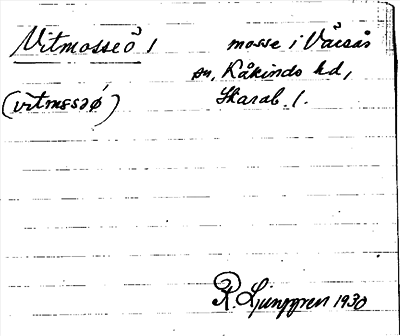 Vitmosseö 1 mosse i Våcsås
sn, Kåkinds hd,
(vitmɛsɔø) Skarab. l.
R. Ljunggren 1930